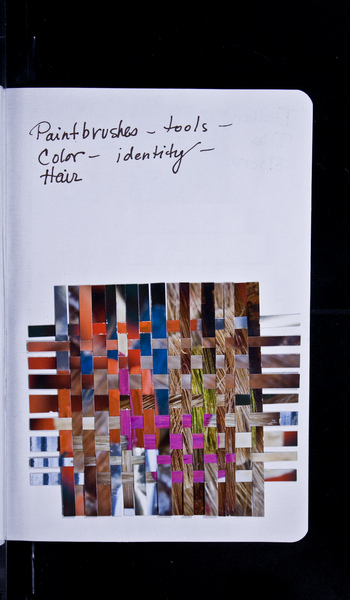 Paintbrushes - tools -
Color - identity -
Hair